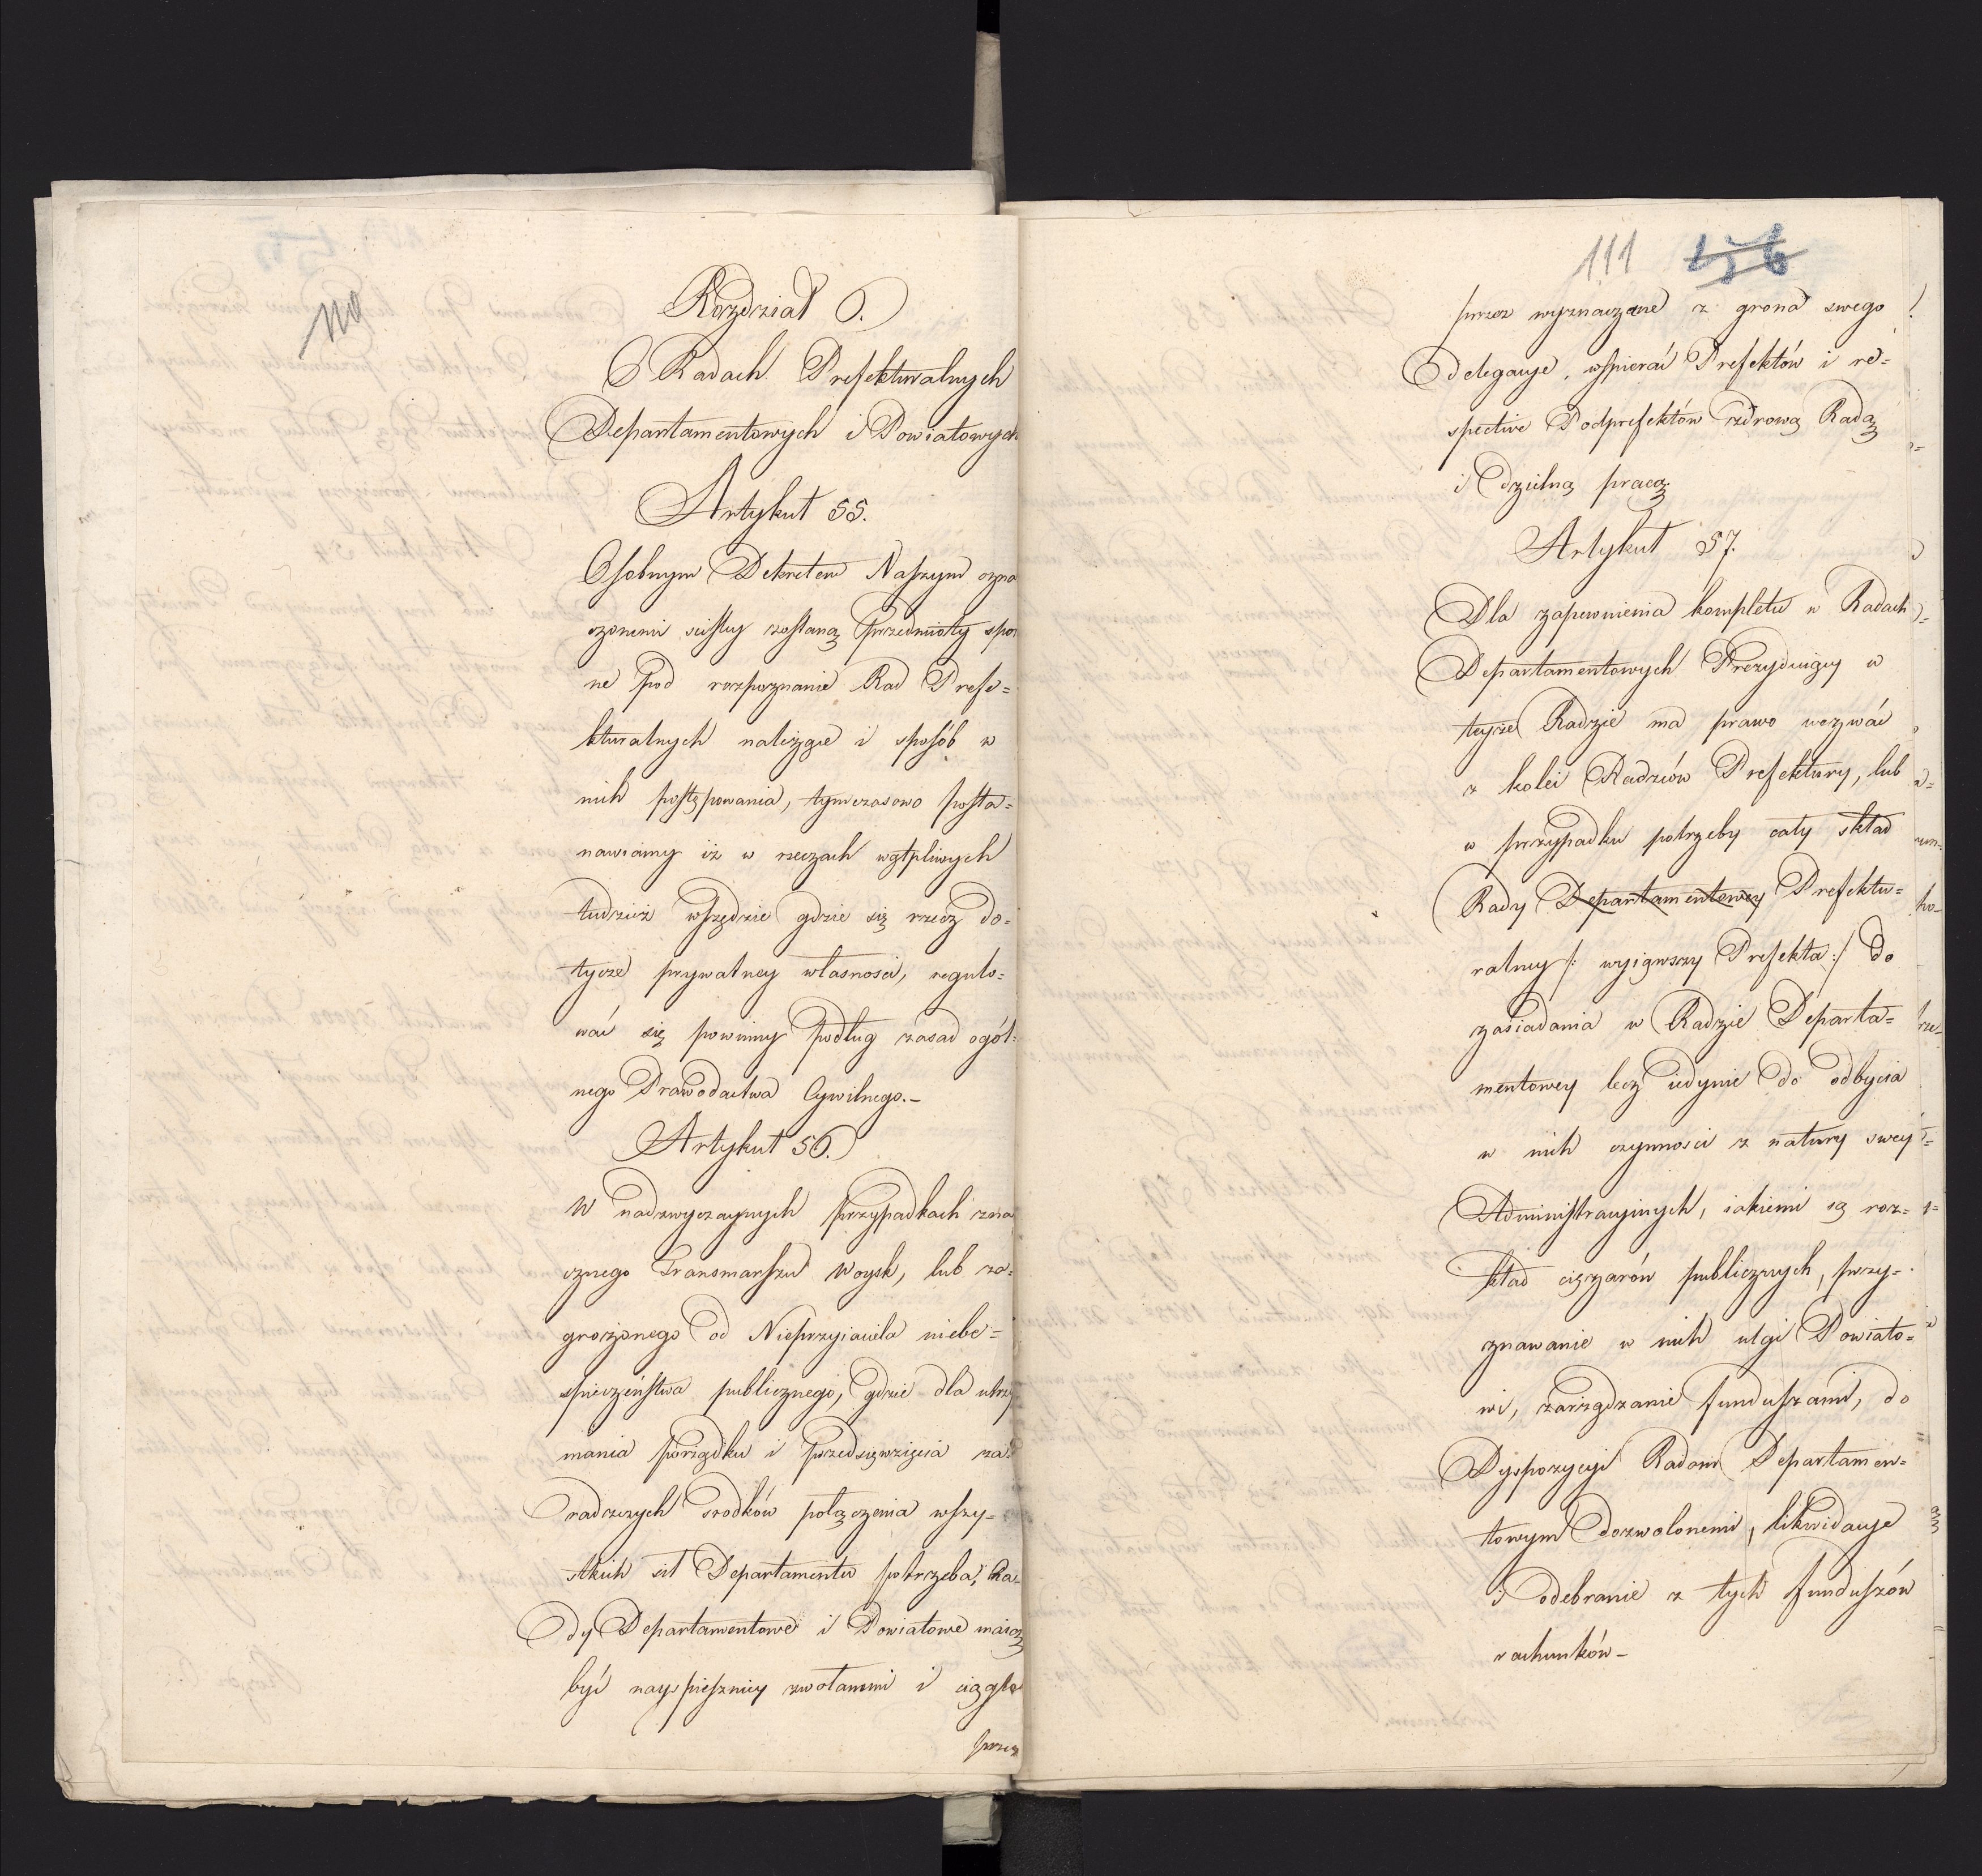 110
Rozdział 6.
O Radach Prefekturalnych
Departamentowych i Powiatowych
Artykuł 55.
Osobnym Dekretem Naszym ozna
czonemi ściśley zostaną przedmioty spor
ne pod rozpoznanie Rad Prefe=
kturalnych należące i sposób w
nich postępowania, tymczasowo posta=
nawiamy iż w rzeczach wątpliwych
tudzież wszędzie gdzie się rzecz do=
tycze prywatney własności, regulo=
wać się powinny podług zasad ogól=
nego Prawodactwa Cywilnego.-
Artykuł 56.
W nadzwyczaynych przypadkach zna
cznego Transmarszu Woysk, lub za=
grożonego od Nieprzyiaciela niebe=
spieczeństwa publicznego, gdzie dla utrzy
mania porządku i przedsięwzięcia za=
radczych srodków połączenia wszy=
stkich sił Departamentu potrzeba, Ra=
dy Departamentowe i Powiatowe maią
być nayspieszniey zwołanemi i ciągle
przez
111 156
przez wyznaczane z grona swego
delegacye, wspierać Prefektów i re=
spective Podprefektów zdrową Radą
i dzielną pracą.
Artykuł 57.
Dla zapewnienia kompletu w Radach
Departamentowych Prezyduiący w
teyże Radzie ma prawo wezwać
z kolei Radzców Prefektury, lub
w przypadku potrzeby cały skład
Rady Departamentowey Prefektu=
ralney /: wyiąwszy Prefekta :/ do
zasiadania w Radzie Departa=
mentowey lecz iedynie do odbycia
w nich czynności z natury swey
Administracyinych, iakiemi są roz=
kład ciężarów publicznych, przy=
znawanie w nich ulgi Powiato=
wi, zarządzanie funduszami, do
Dyspozycyi Radom Departamen=
towym dozwolonemi, likwidacye
i odebranie z tych funduszów
rachunków-